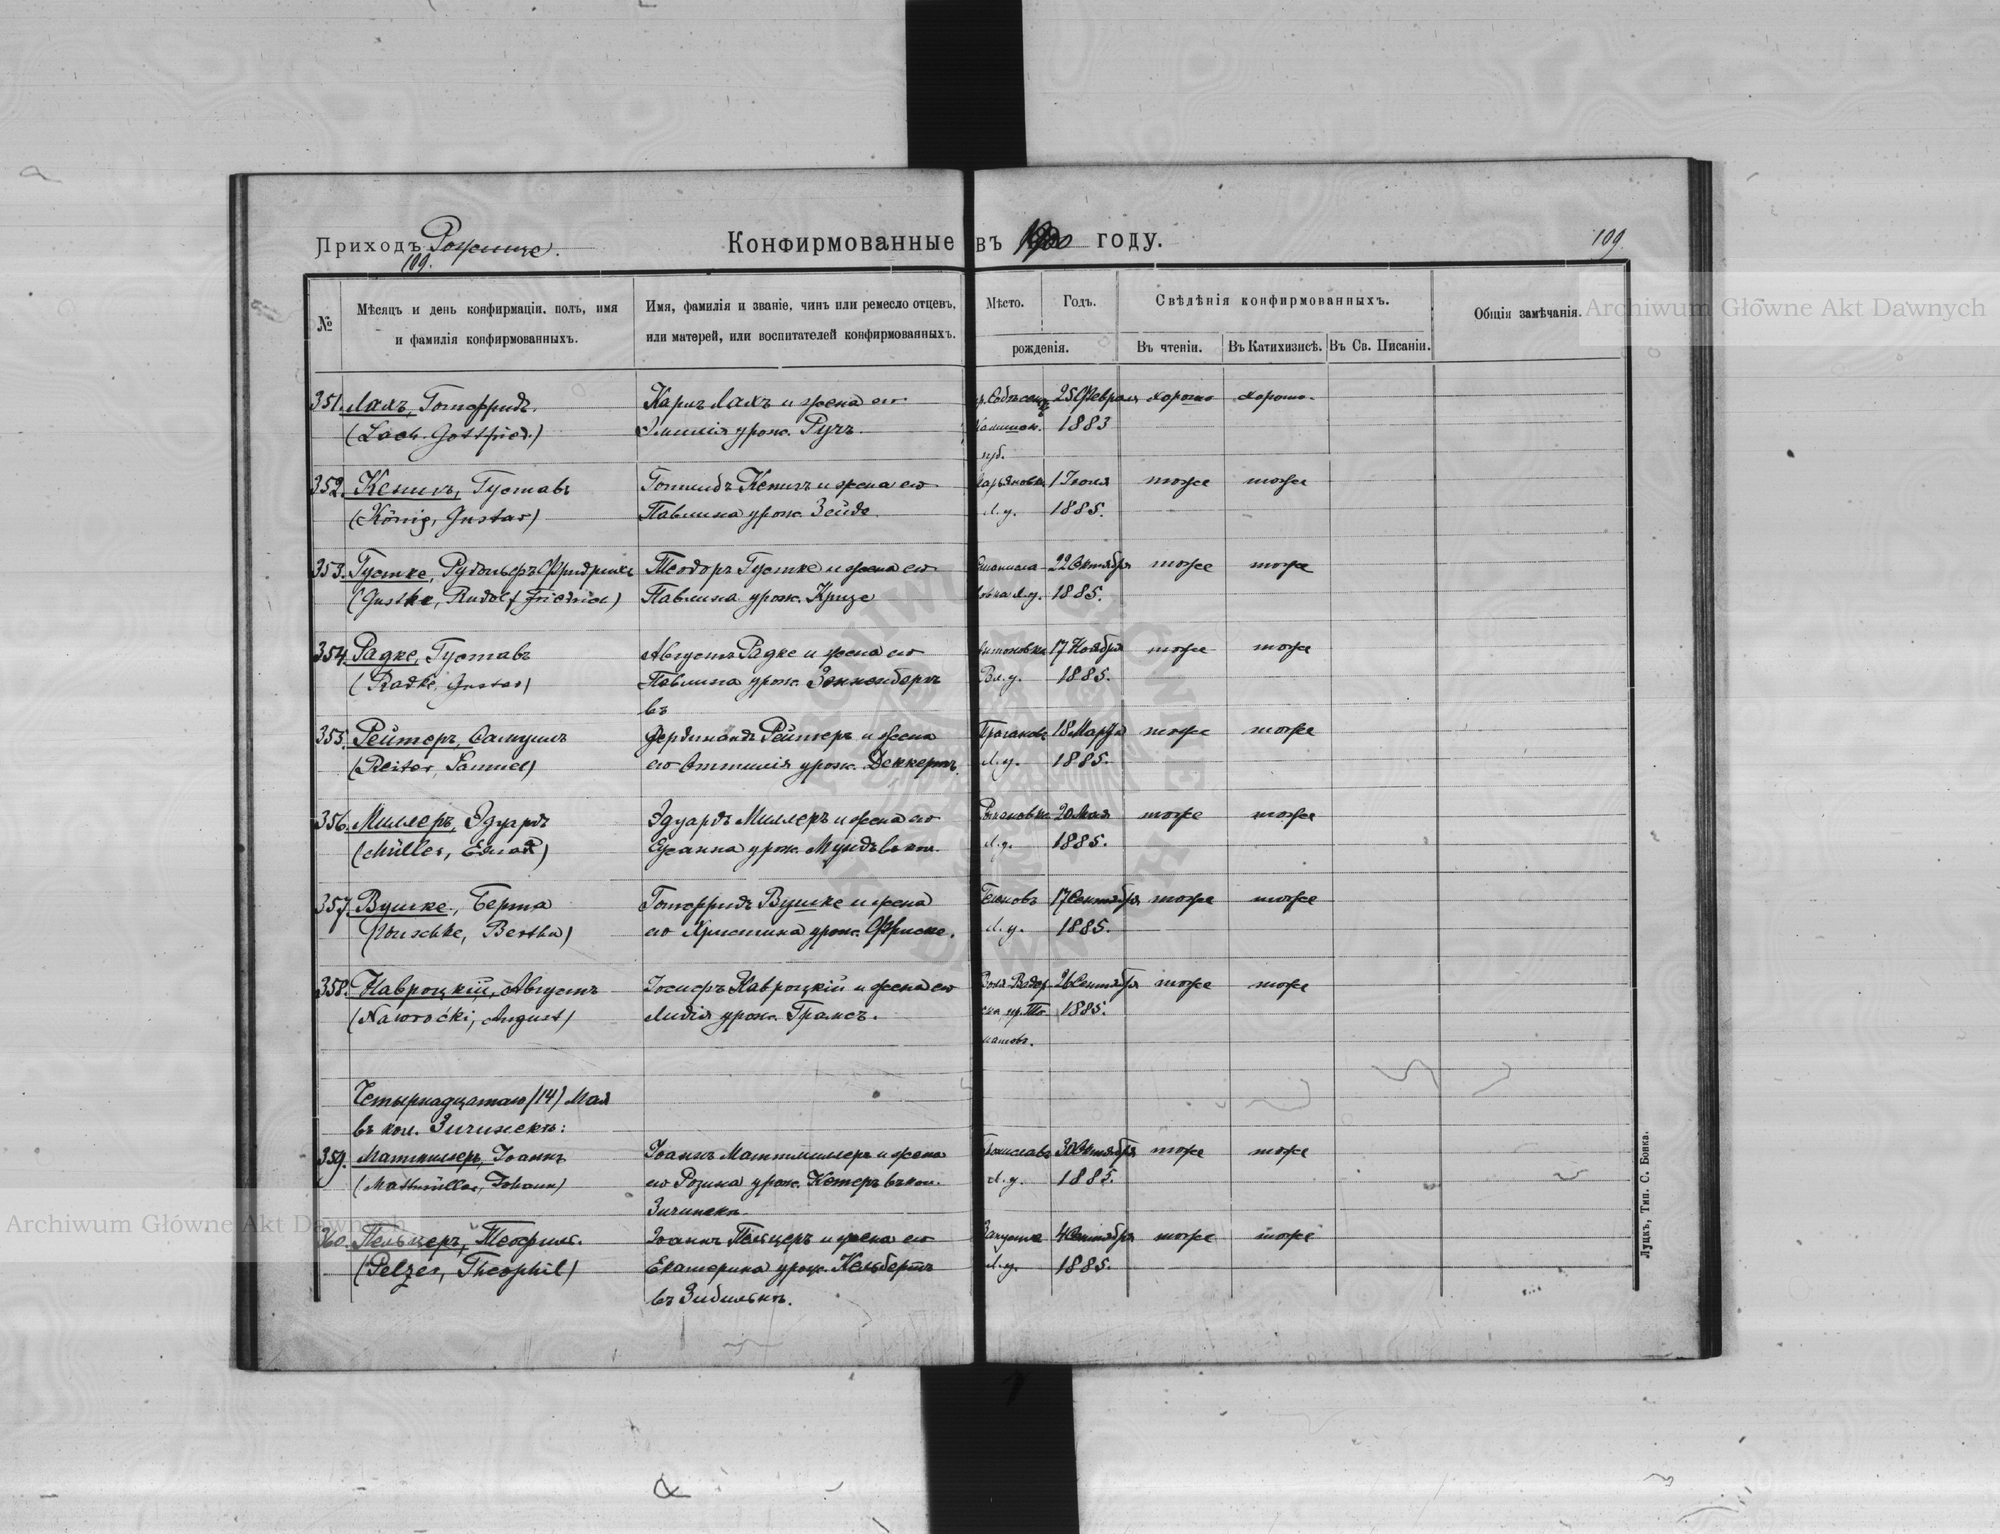 Приходъ Рожище.
Конфирмованные въ 1900 году.
109.
109.
№
Мѣсяцъ и день конфирмаціи. полъ, имя
и фамилія конфирмованныхъ.
Имя, фамилія и званіе, чинъ или ремесло отцевъ,
или матерей, или воспитателей конфирмованныхъ.
Мѣсто.
Годъ.
рожденія.
Свѣдѣнія конфирмованныхъ.
Въ чтеніи.
Въ Катихизисѣ.
Въ Св. Писаніи.
Общія замѣчанія.
351. Лахъ, Готфридъ. Карлъ Лахъ и жена его 25 Февраля хорошо хорошо.
(Lach, Gottfried.) Эмилія урож. Румъ. 1883
губ.
352. Кенигъ, Густавъ Готлибъ Кенигъ и жена его Марьяновка 1 Іюля тоже тоже
(König, Gustav) Павлина урож. Зейдо. Л.у. 1885.
353. Густке, Рудольфъ Фридрихъ Теодоръ Густке и жена его 22 Октября тоже тоже
(Gustke, Rudolf Friedrich) Павлина урож. Крузе Л.у. 1885.
354. Радке, Густавъ Августъ Радке и жена его Антоновка 17 Ноября тоже тоже
(Radke, Gustav) Павлина урож. Зонненбергъ Вл.у. 1885.
въ
355. Рейтеръ, Самуилъ Фердинандъ Рейтеръ и жена 18 Марта тоже тоже
(Reiter, Samuel) его Оттилія урож. Деккертъ. Л.у. 1885.
356. Миллеръ, Эдуардъ Эдуардъ Миллеръ и жена его 20 Мая тоже тоже
(Müller, Eduard) Сусанна урож. Мундъ Л.у. 1885.
357. Вушке, Берта Готфридъ Вушке и жена 17 Сентября тоже тоже
(Wuschke, Bertha) его Христина урож. Фриске. Л.у. 1885.
358. Навроцкій, Августъ Іосифъ Навроцкій и жена его 26 Сентября тоже тоже
(Nawrocki, August) Лидія урож. Грамсъ. 1885.
Четырнадцатаго (14) Мая
въ кол. Зичинекъ:
359. Матмиллеръ, Іоаннъ Іоаннъ Матмиллеръ и жена 30 Октября тоже тоже
(Matmüller, Johann) его Розина урож. въ кол. Л.у. 1885.
Зичинекъ.
360. Пельцеръ, Теофилъ. Іоаннъ Пельцеръ и жена его 4 Сентября тоже тоже
(Pelzer, Theophil) Екатерина урож. Кельбертъ Л.у. 1885.
въ
Луцкъ, Тип. С. Бонка.
Archiwum Główne Akt Dawnych
Archiwum Główne Akt Dawnych
ARCHIWUM GŁÓWNE AKT DAWNYCH